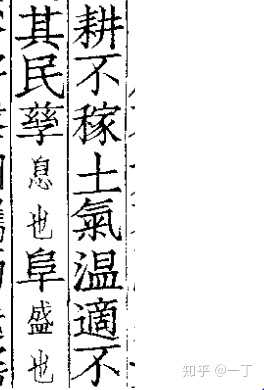 耕不稼土氣温適不
其民孳息也阜盛也
知乎 @一丁